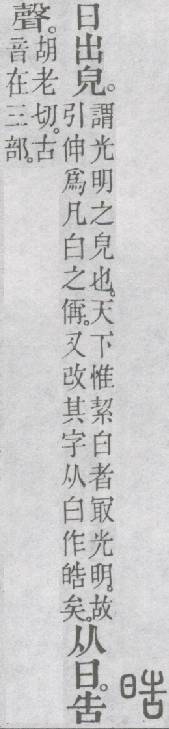 晧
日出皃。
謂光明之皃也。天下惟絜白者冣光明。故
引伸爲凡白之偁。又改其字从白作皓矣。
从日。告
聲。
胡老切。古
音在三部。